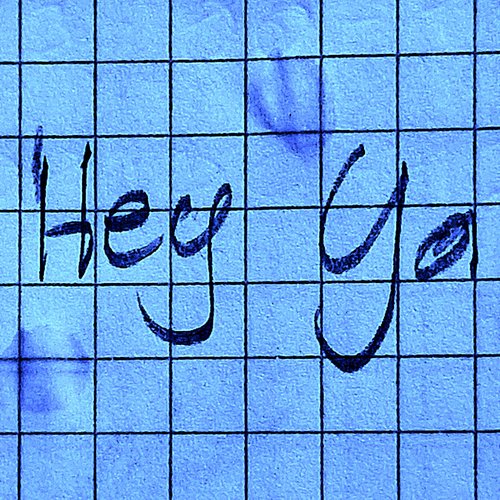 Hey Ya